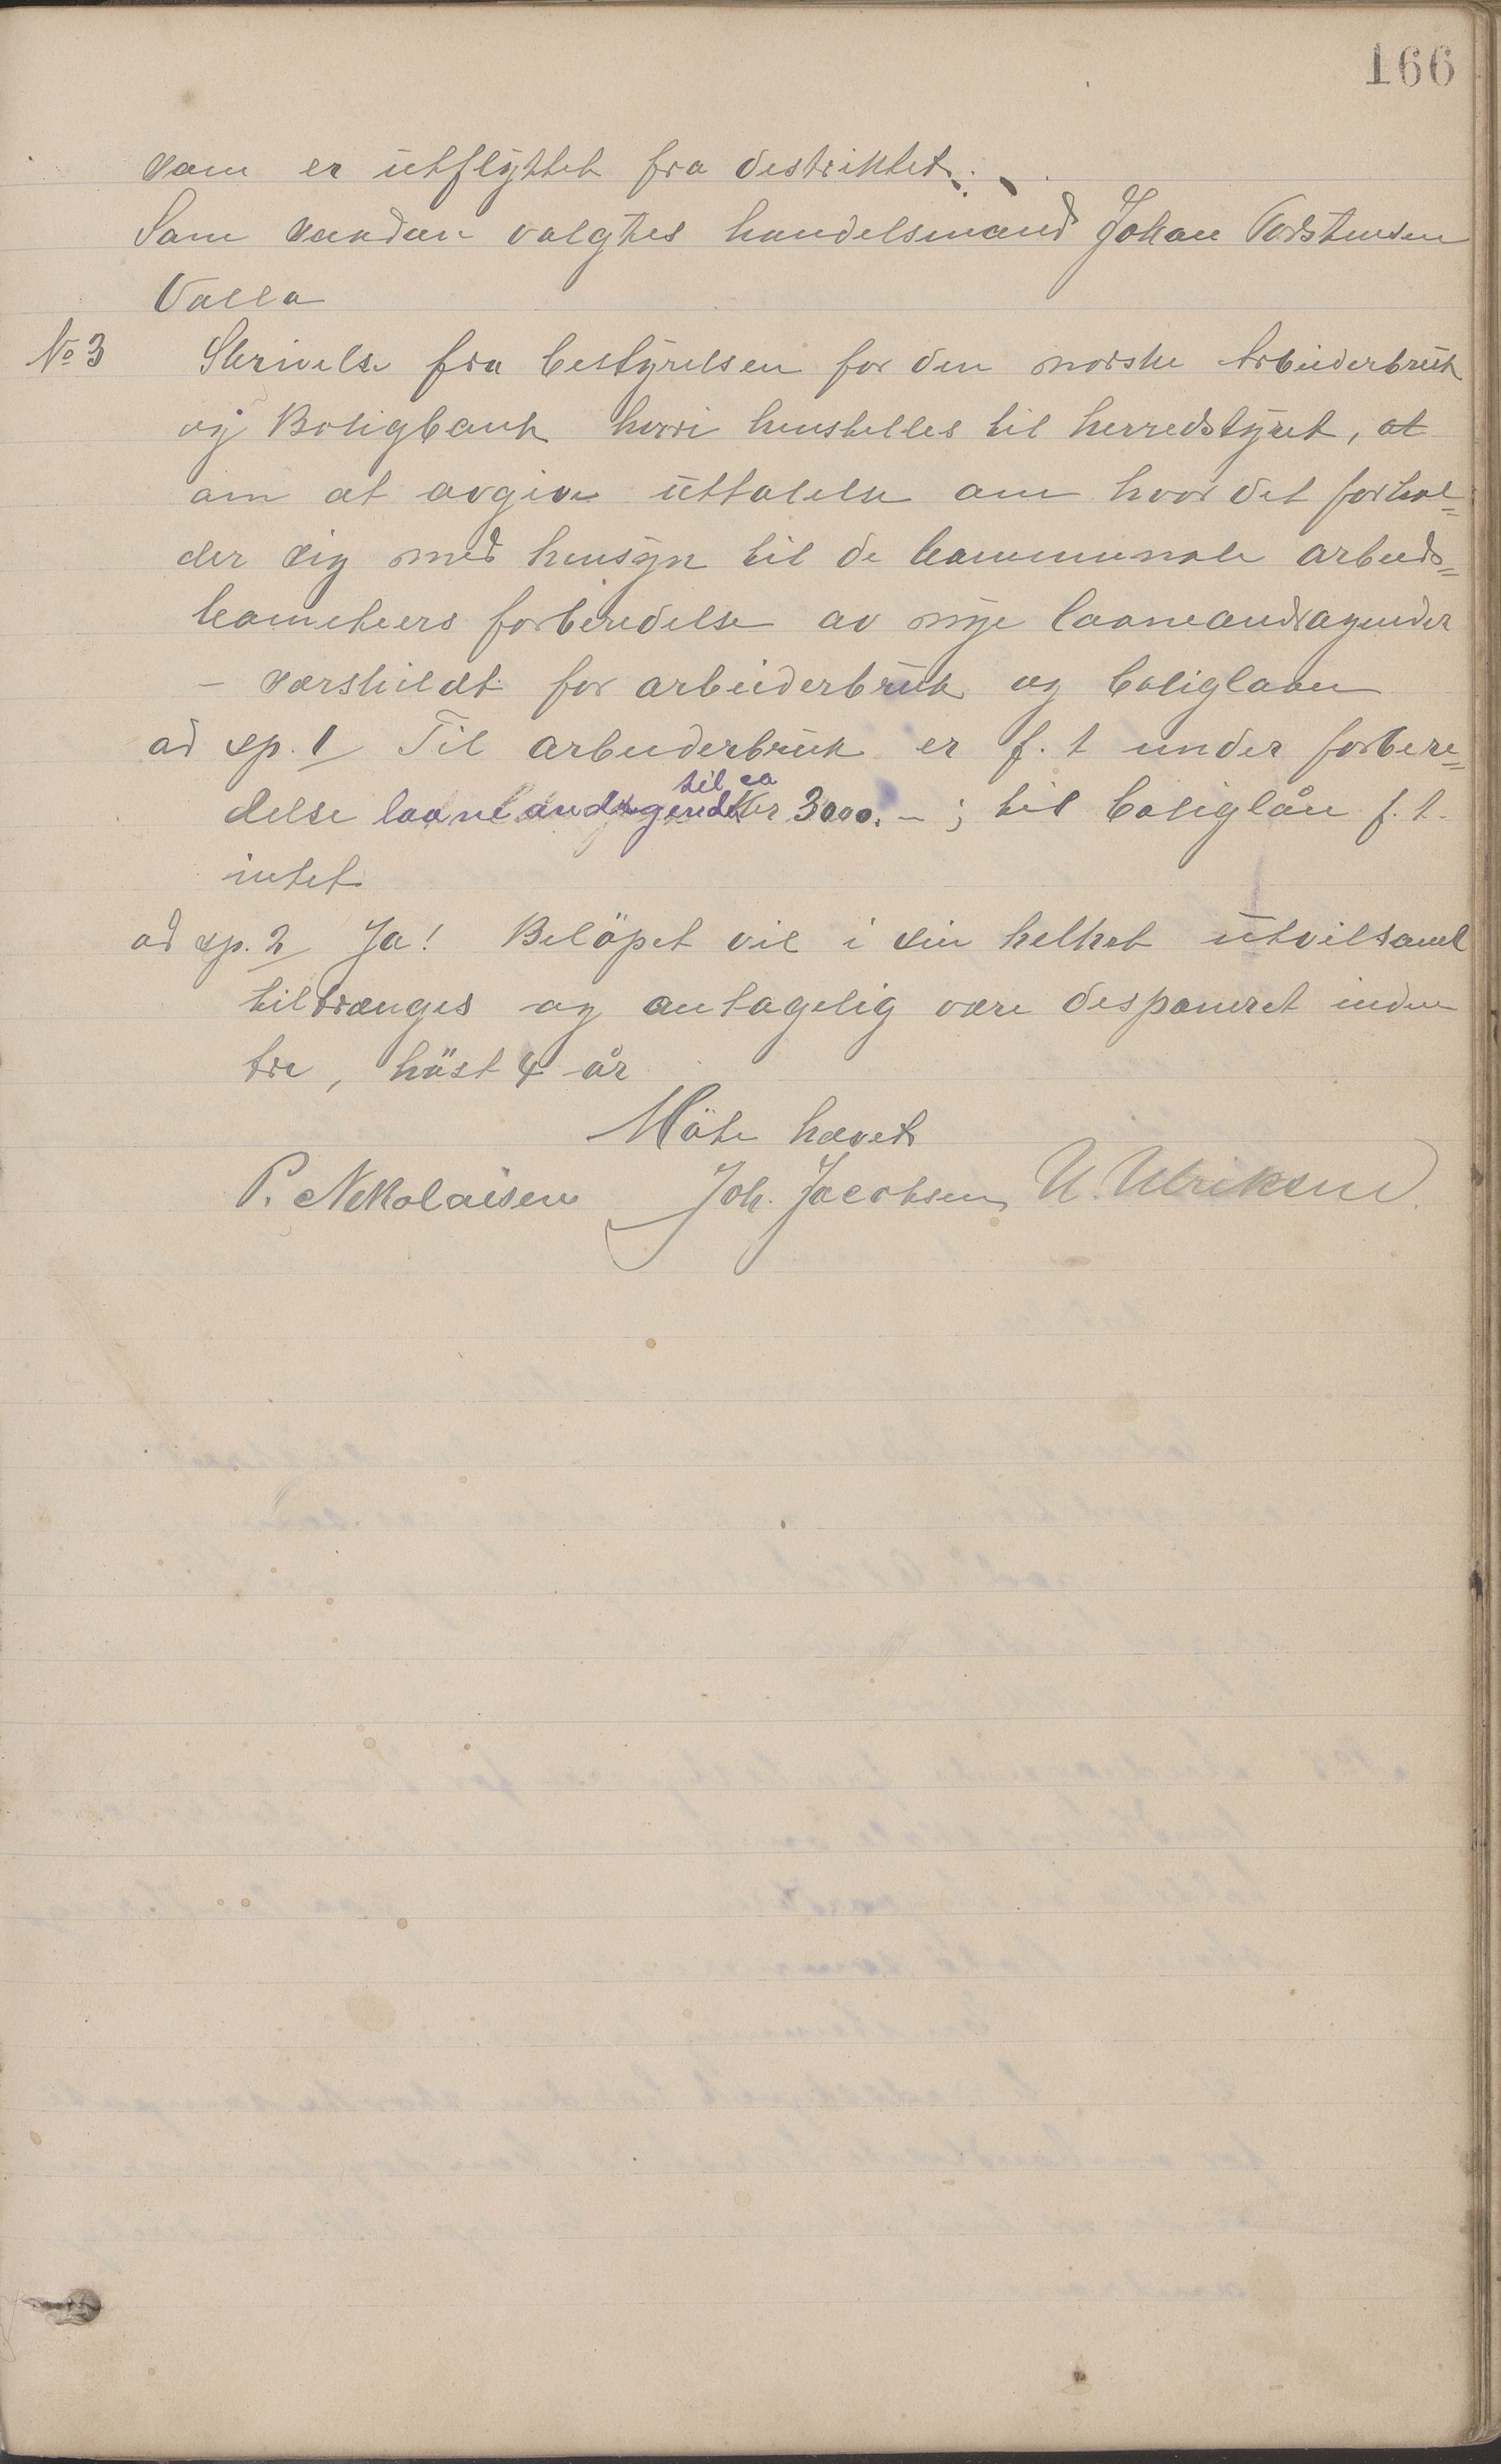 166
som er utflyttet fra destriktet.
Som saadan valgtes handelsmand Johan Torstensen
Valla
No 3 Skrivelse fra bestyrelsen for den norske Arbeiderbruk
og Boligbank hvori henstilles til herredstyret, at
om at avgive uttalelse om hvor det forhol=
der sig med hensyn til de kommunale arbeids=
komiteers forberedelse av nye laaneandragender
- særskildt for arbeiderbruk og boliglaan
ad sp. 1 Til arbeiderbruk er f. t under forbere=
delse laaneandragender til ca Kr 3000. - ; til boliglån f. t.
intet
ad sp. 2 Ja! Belöpet vil i sin helhet utvilsomt
tiltrænges og antagelig være desponeret inden
tre, höist 4 år
Möte hævet
P. Nikolaisen Joh. Jacobsen U. Ulriksen